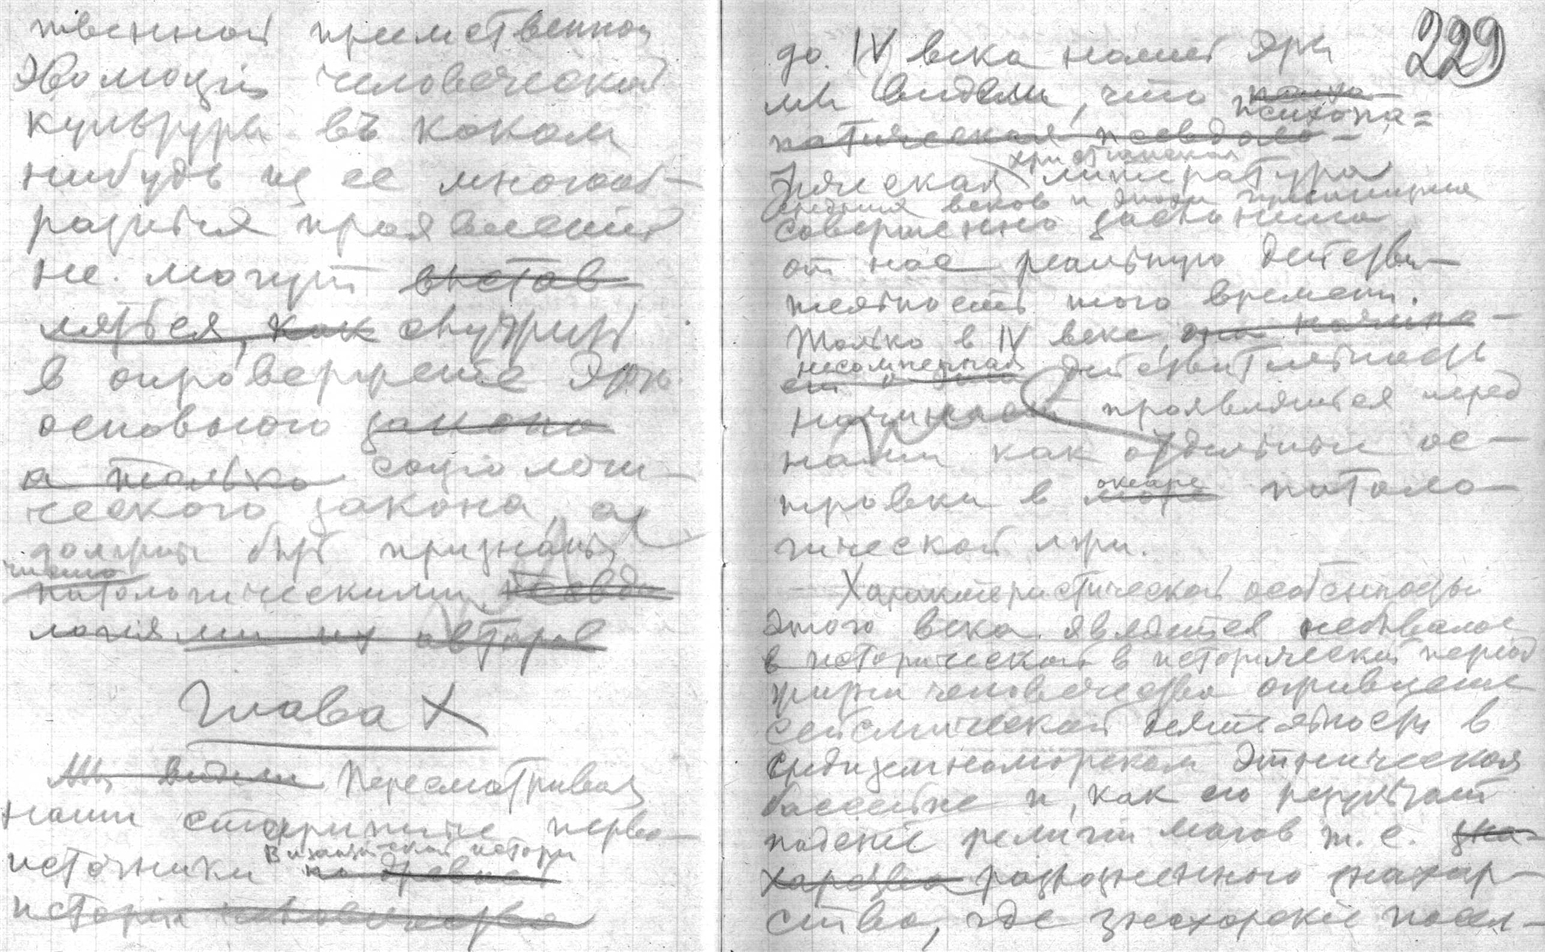 твенной преемственной
Эволюціи человеческой
культуры въ каком
нибудь из ее многооб-
разных проявлений
не могут выстав
ляться, как служить
в опровержение Этого
основного закона
а только социологи-
ческого закона, а
должны быть признаны
чисто
патологическими псевдо
логиями их авторов
Глава X
Мы видели Пересматривая
наши старинные перво-
источники Византийской истории
по древней
истории человечества
229
до IV века нашей Эры
мы видели, что психопа=
патическая псевдоло-
гическая христианская литература
средних веков и эпохи гуманизма
совершенно заслонила
от нас реальную действи-
тельность того времени.
Только в IV веке, она начина-
несомненная действительность
начинает проявляться перед
нами как отдельные ос-
тровки в море океане патоло-
гической лжи.
Характеристической особенностью
этого века является небывалое
в исторической в исторической период
жизни человечества оживление
сейсмической деятельности в
средиземноморском Этническом
бассейне и, как его результат
падение религии магов т. е. зна-
харства размноженного знахар-
ства, где знахорские посел-